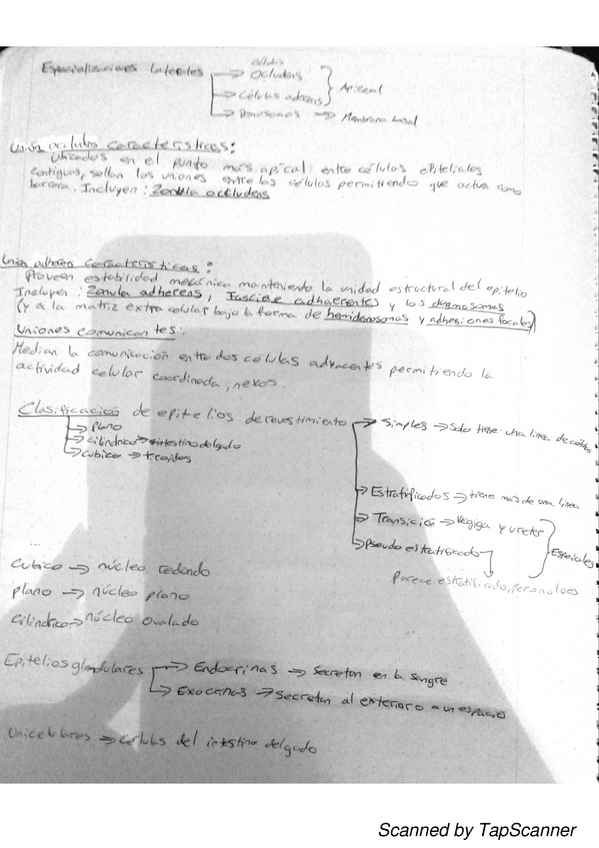 Especializaciones laterales → células
Ocludens
→ Células adhens } Apiceal
→ Desmosomas → Membrana basal
Unión ocludos características:
Ubicados en el punto más apical entre células epiteliales
contiguas, sellan las uniones entre las células permitiendo que actua como
barrera. Incluyen: Zonula occludens
Union adherens Características:
Proveen estabilidad mecánica manteniendo la unidad estructural del epitelio
Incluyen: Zonula adherens, Fasciae adhaerentes y los desmosomas
(y a la matriz extra celular bajo la forma de hemidesmosomas y adhesiones focales)
Uniones comunicantes:
Median la comunicación entre dos celulas adyacentes permitiendo la
actividad celular coordinada, nexos.
Clasificación de epitelios de revestimiento → Simples → Solo tiene una linea de células
→ plano
→ cilindrica → intestino delgado
→ cubico → tiroides
→ Estratificados → tiene mas de una linea
→ Transición → Vegiga y ureter
→ Pseudo estratificado } Especiales
Parece estratificado, pero no lo es
Cubico → núcleo redondo
plano → núcleo plano
Cilindrico → núcleo ovalado
Epitelios glandulares → Endocrinas → Secretan en la sangre
→ Exocrinas → Secretan al exterior o a un espacio
Unicelulares → células del intestino delgado
Scanned by TapScanner